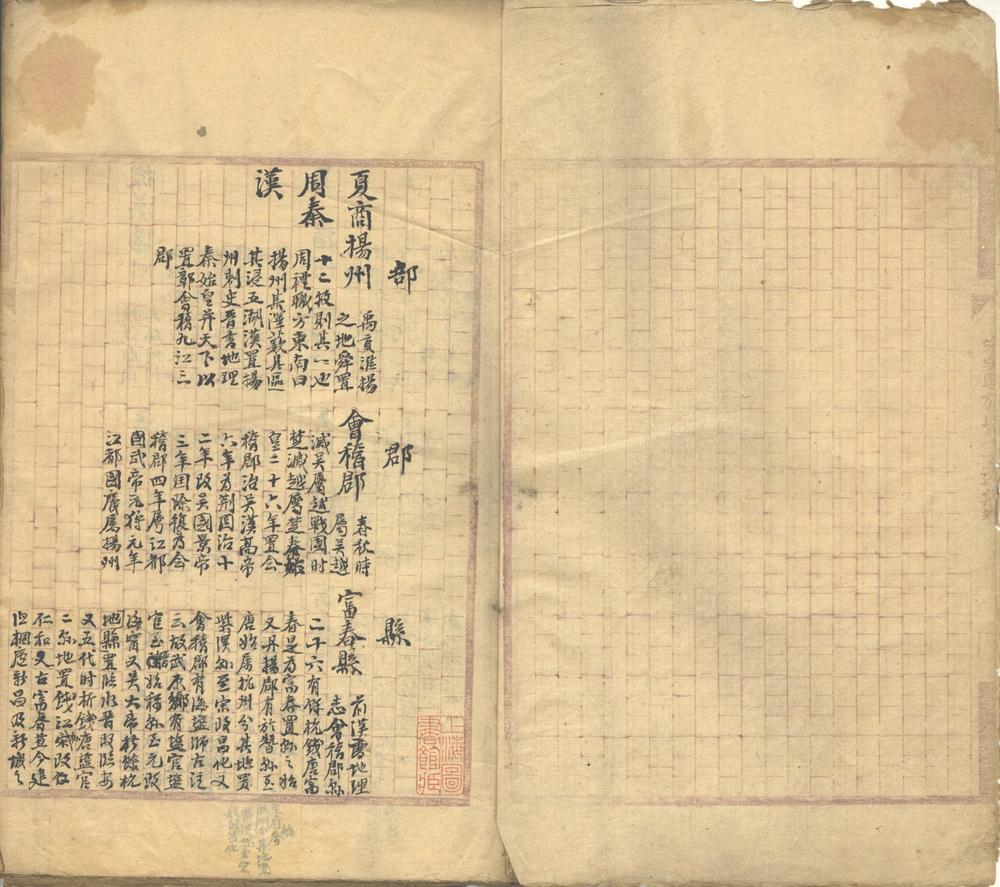 部
郡
縣
夏商揚州
禹貢淮揚
之地舜置
十二牧則其一也
周秦
周禮職方東南曰
揚州其澤藪具區
漢
其浸五湖漢置揚
州刺史晉書地理
秦始皇并天下以
置鄣會稽九江三
郡
會稽郡
春秋時
屬吳越
滅吳屬越戰國時
楚滅越屬楚秦始
皇二十六年置會
稽郡治吳漢高帝
六年為荆國治十
二年改吳國景帝
三年國除復為會
稽郡四年屬江都
國武帝元狩元年
江都國廢屬揚州
富春縣
前漢書地理
志會稽郡縣
二十六有餘杭錢唐富
春是為富春置縣之始
又丹揚郡有於朁縣至
唐始屬杭州分其地置
紫溪縣至宋改昌化又
會稽郡有海鹽師古注
云故武原鄉有鹽官鹽
官至始稱縣至元改
海寧又吳大帝析餘杭
地縣置臨水晉改臨安
又五代時析錢唐鹽官
二縣地置錢江宋改仁
仁和又古富春並今建
德桐廬新昌及新城之
上海圖
書館藏